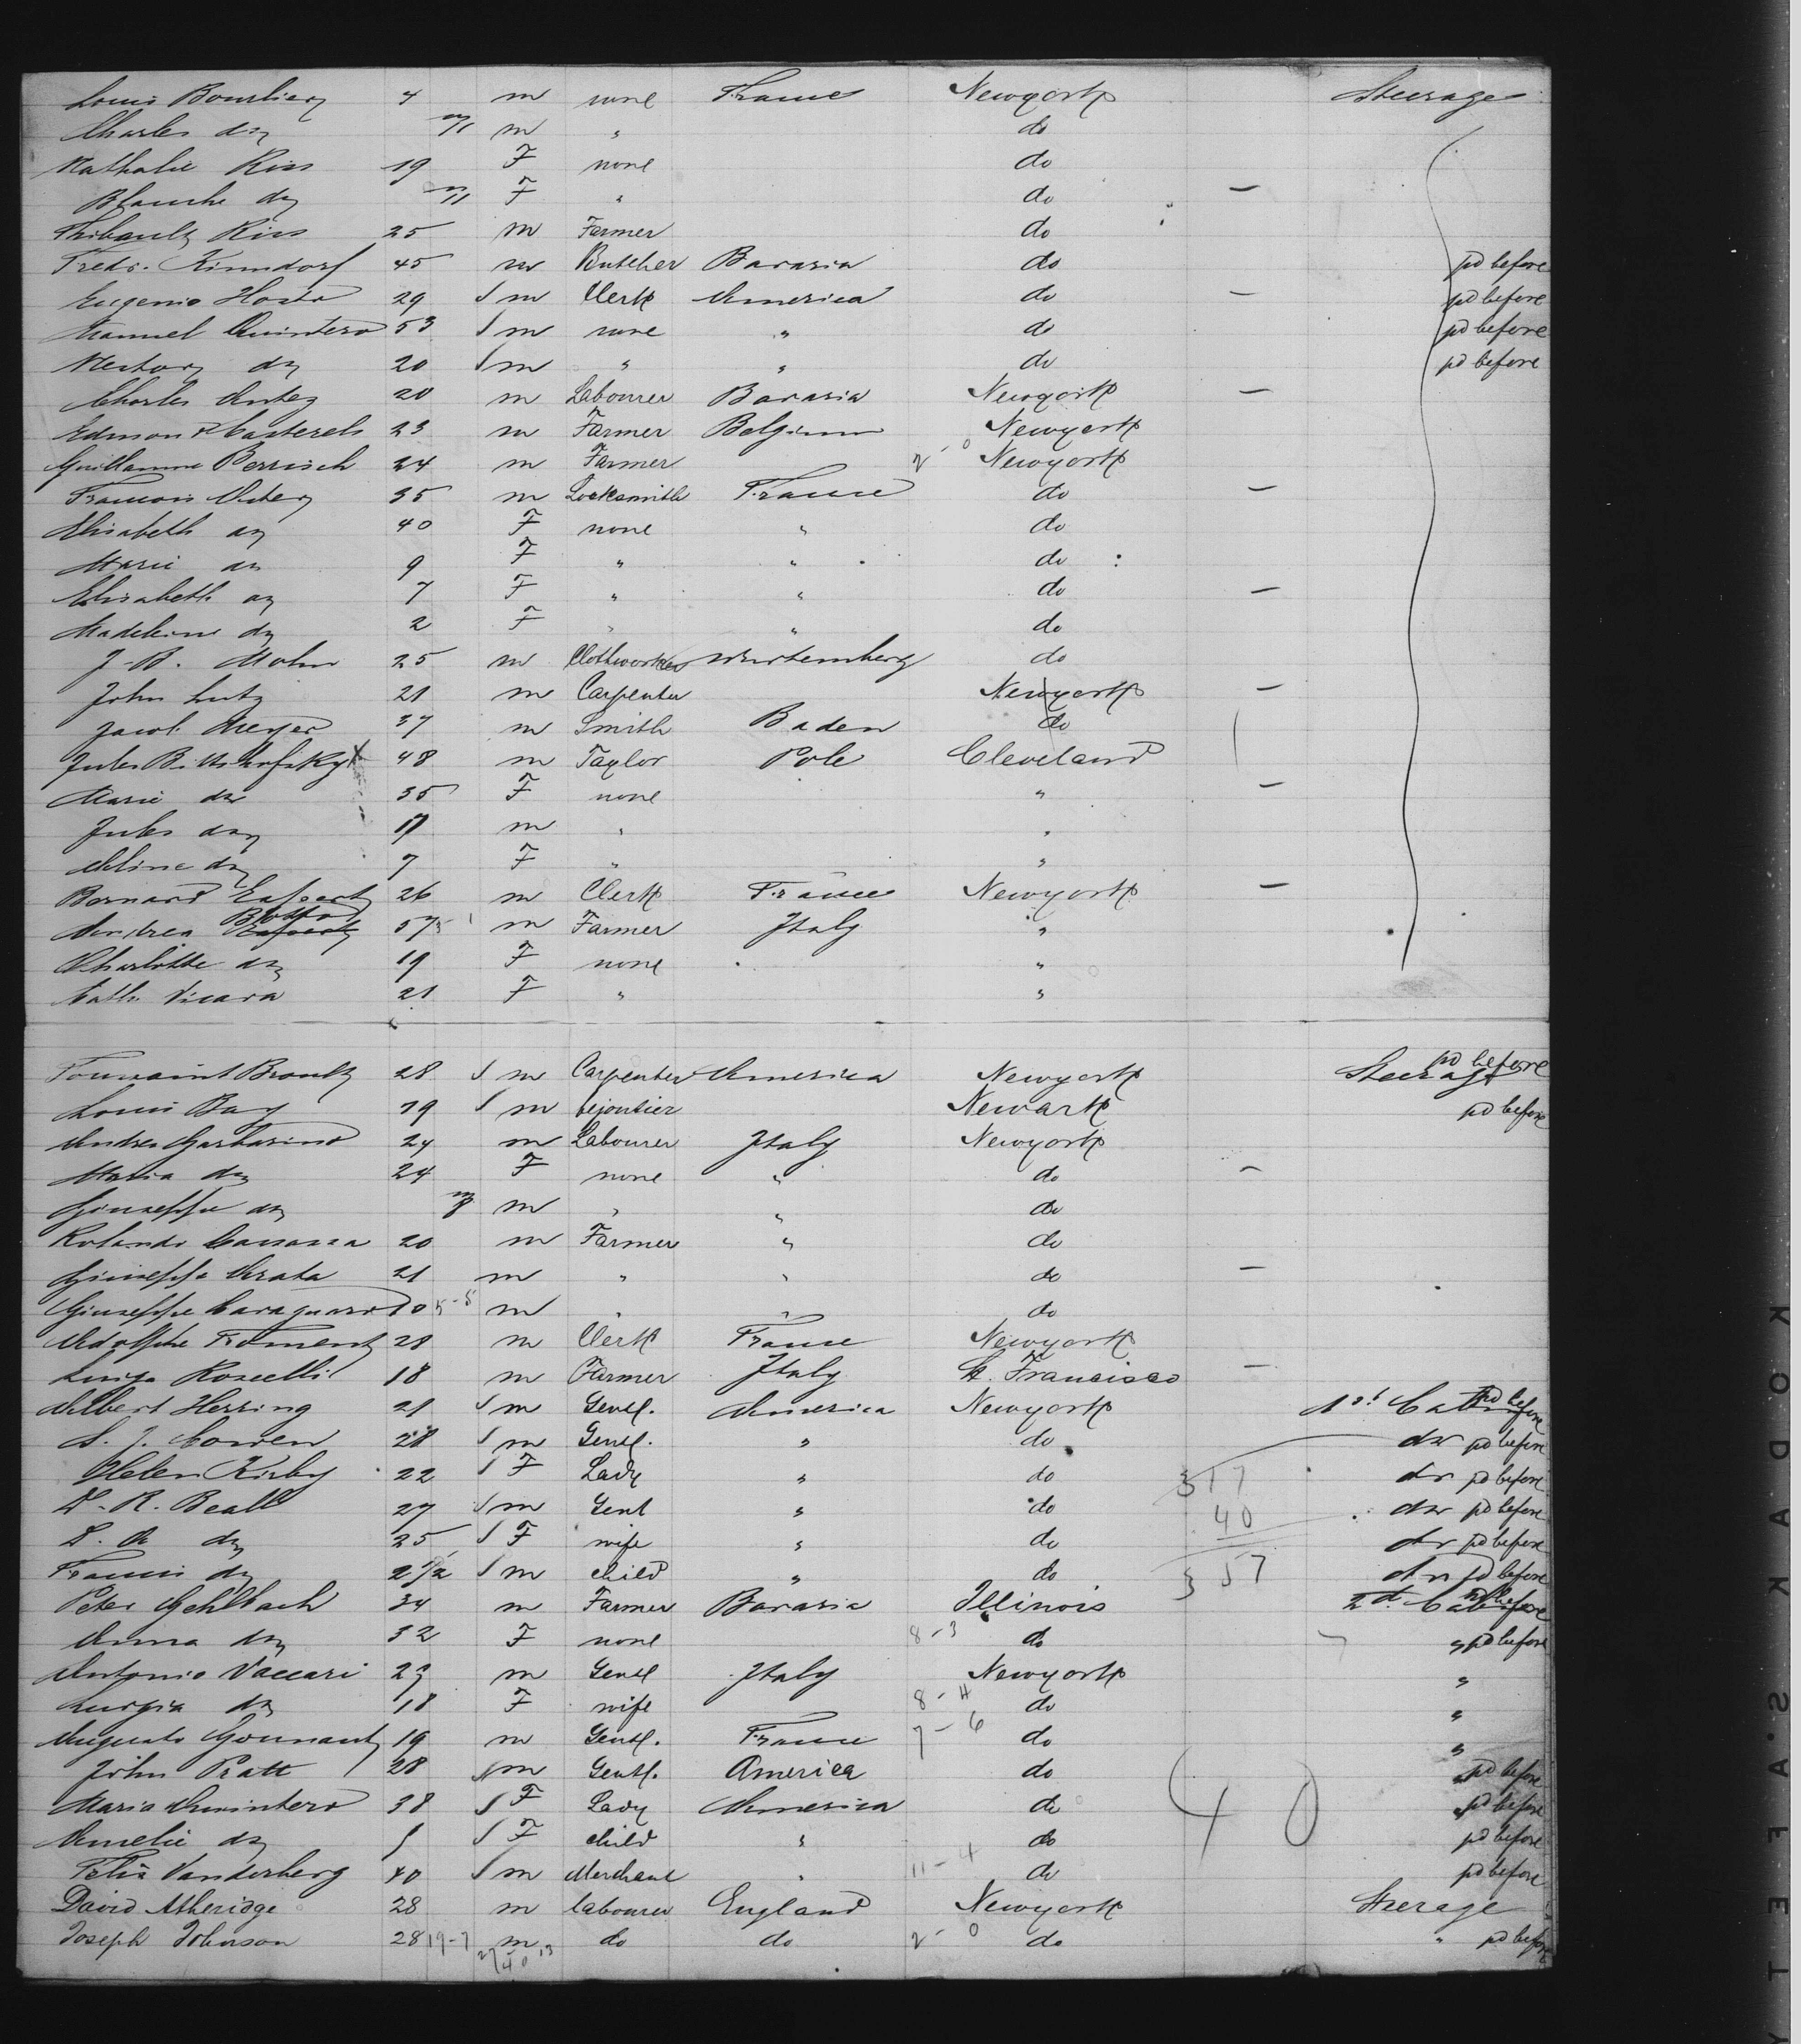 Louis 4 m none France Newyork Steerage
Charles do m/11 m " do
Nathalie Riss 19 F none do
Blanche do m/11 F " do —
Thibault Riss 25 m Farmer do
Fredr. Kinndorf 45 m Butcher Bavaria do pd before
Eugenio Hosto 29 m Clerk America do — pd before
Manuel Quintero 53 m none " do pd before
Nestor do 20 m " " do pd before
Charles Antez 20 m Labourer Bavaria Newyork —
Edmond Casterels 23 m Farmer Belgium Newyork
Guillaume Bersisch 24 m Farmer 2-0 Newyork
Francois 35 m Locksmith France do —
Elisabeth do 40 F none " do
Marie do 9 F " " do
Elisabeth do 7 F " " do —
Madeleine do 2 F " " do
J-B. Mohn 25 m Clothworker Wurtemberg do
John Lutz 21 m Carpenter Newyork —
Jacob Meyer 37 m Smith Baden do
Jules 48 m Taylor Pole Cleveland
Marie do 35 F none " —
Jules do m " "
Aline do 7 F " "
Bernard 26 m Clerk France Newyork —
Andrea Botto 57 m Farmer Italy "
Charlotte do 19 F none "
Cath. Vicara 21 F " "
Toussaint 28 m Carpenter America Newyork Steerage pd before
Louis Bay 19 m bejoutier Newark pd before
Andrea Garbarino 24 m Labourer Italy Newyork
Maria do 24 F none " do —
Giuseppe do m " " do
Rolando 20 m Farmer " do
Giuseppe Arata 21 m " " do —
Giuseppe 5-5 m " " do
Adolphe Froment 28 m Clerk France Newyork
Luiga Roscelli 18 m Farmer Italy St. Francisco —
Albert Herring 21 m Gentl. America Newyork 1st Cabin pd before
S. J. Cowen 28 m Gentl. " do do pd before
Helen Kirby 22 F Lady " do 17 do pd before
D. R. Beall 27 m Gent " do 40 do pd before
D. R do 25 F wife " do do pd before
Francis do 2 1/2 m child " do 57 do pd before
Peter Gehlbach 34 m Farmer Bavaria Illinois 2d. Cabin pd before
Anna do 32 F none 8-3 do " pd before
Antonio Vaccari 23 m Gentl Italy Newyork "
Luigia do 18 F wife 8-4 do "
Auguste Gounant 19 m Gentl. France 7-6 do "
John Pratt 28 m Gentl. America do " pd before
Maria Quintero 38 F Lady America do 40 " pd before
Amelie do F child " do pd before
Felix Vanderberg 40 m Merchant " 11-4 do pd before
David Atheridge 28 m labourer England Newyork Steerage
Joseph Johnson 28 19-7 m do do 2-0 do " pd before
27 13
40
KODAK SAFETY